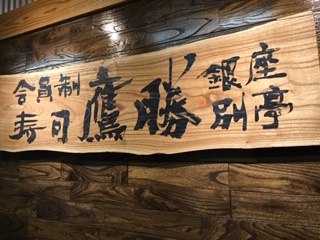 会員制
寿司
鷹勝
銀座
別亭